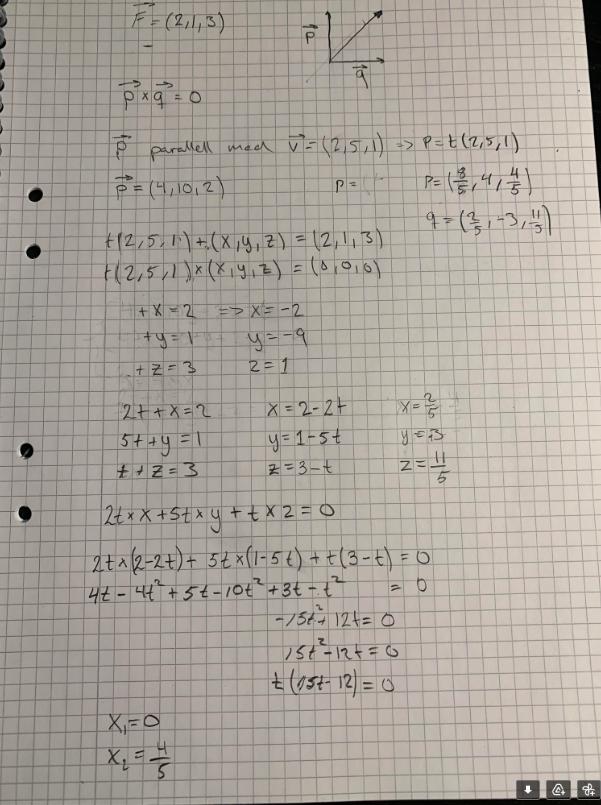 F⃗ = (2,1,3)
p⃗
q⃗
p⃗ × q⃗ = 0
p⃗ parallell med v⃗ = (2,5,1) => p = t(2,5,1)
p⃗ = (4,10,2) p = p = (8/5, 4, 4/5)
q = (2/5, -3, 11/5)
t(2,5,1) + (x,y,z) = (2,1,3)
t(2,5,1) × (x,y,z) = (0,0,0)
+ x = 2 => x = -2
+ y = 1 y = -9
+ z = 3 z = 1
2t + x = 2 x = 2-2t x = 2/5
5t + y = 1 y = 1-5t y = -3
t + z = 3 z = 3-t z = 11/5
2t × x + 5t × y + t × z = 0
2t × (2-2t) + 5t × (1-5t) + t(3-t) = 0
4t - 4t² + 5t - 10t² + 3t - t² = 0
-15t² + 12t = 0
15t² - 12t = 0
t(15t - 12) = 0
x₁ = 0
x₂ = 4/5